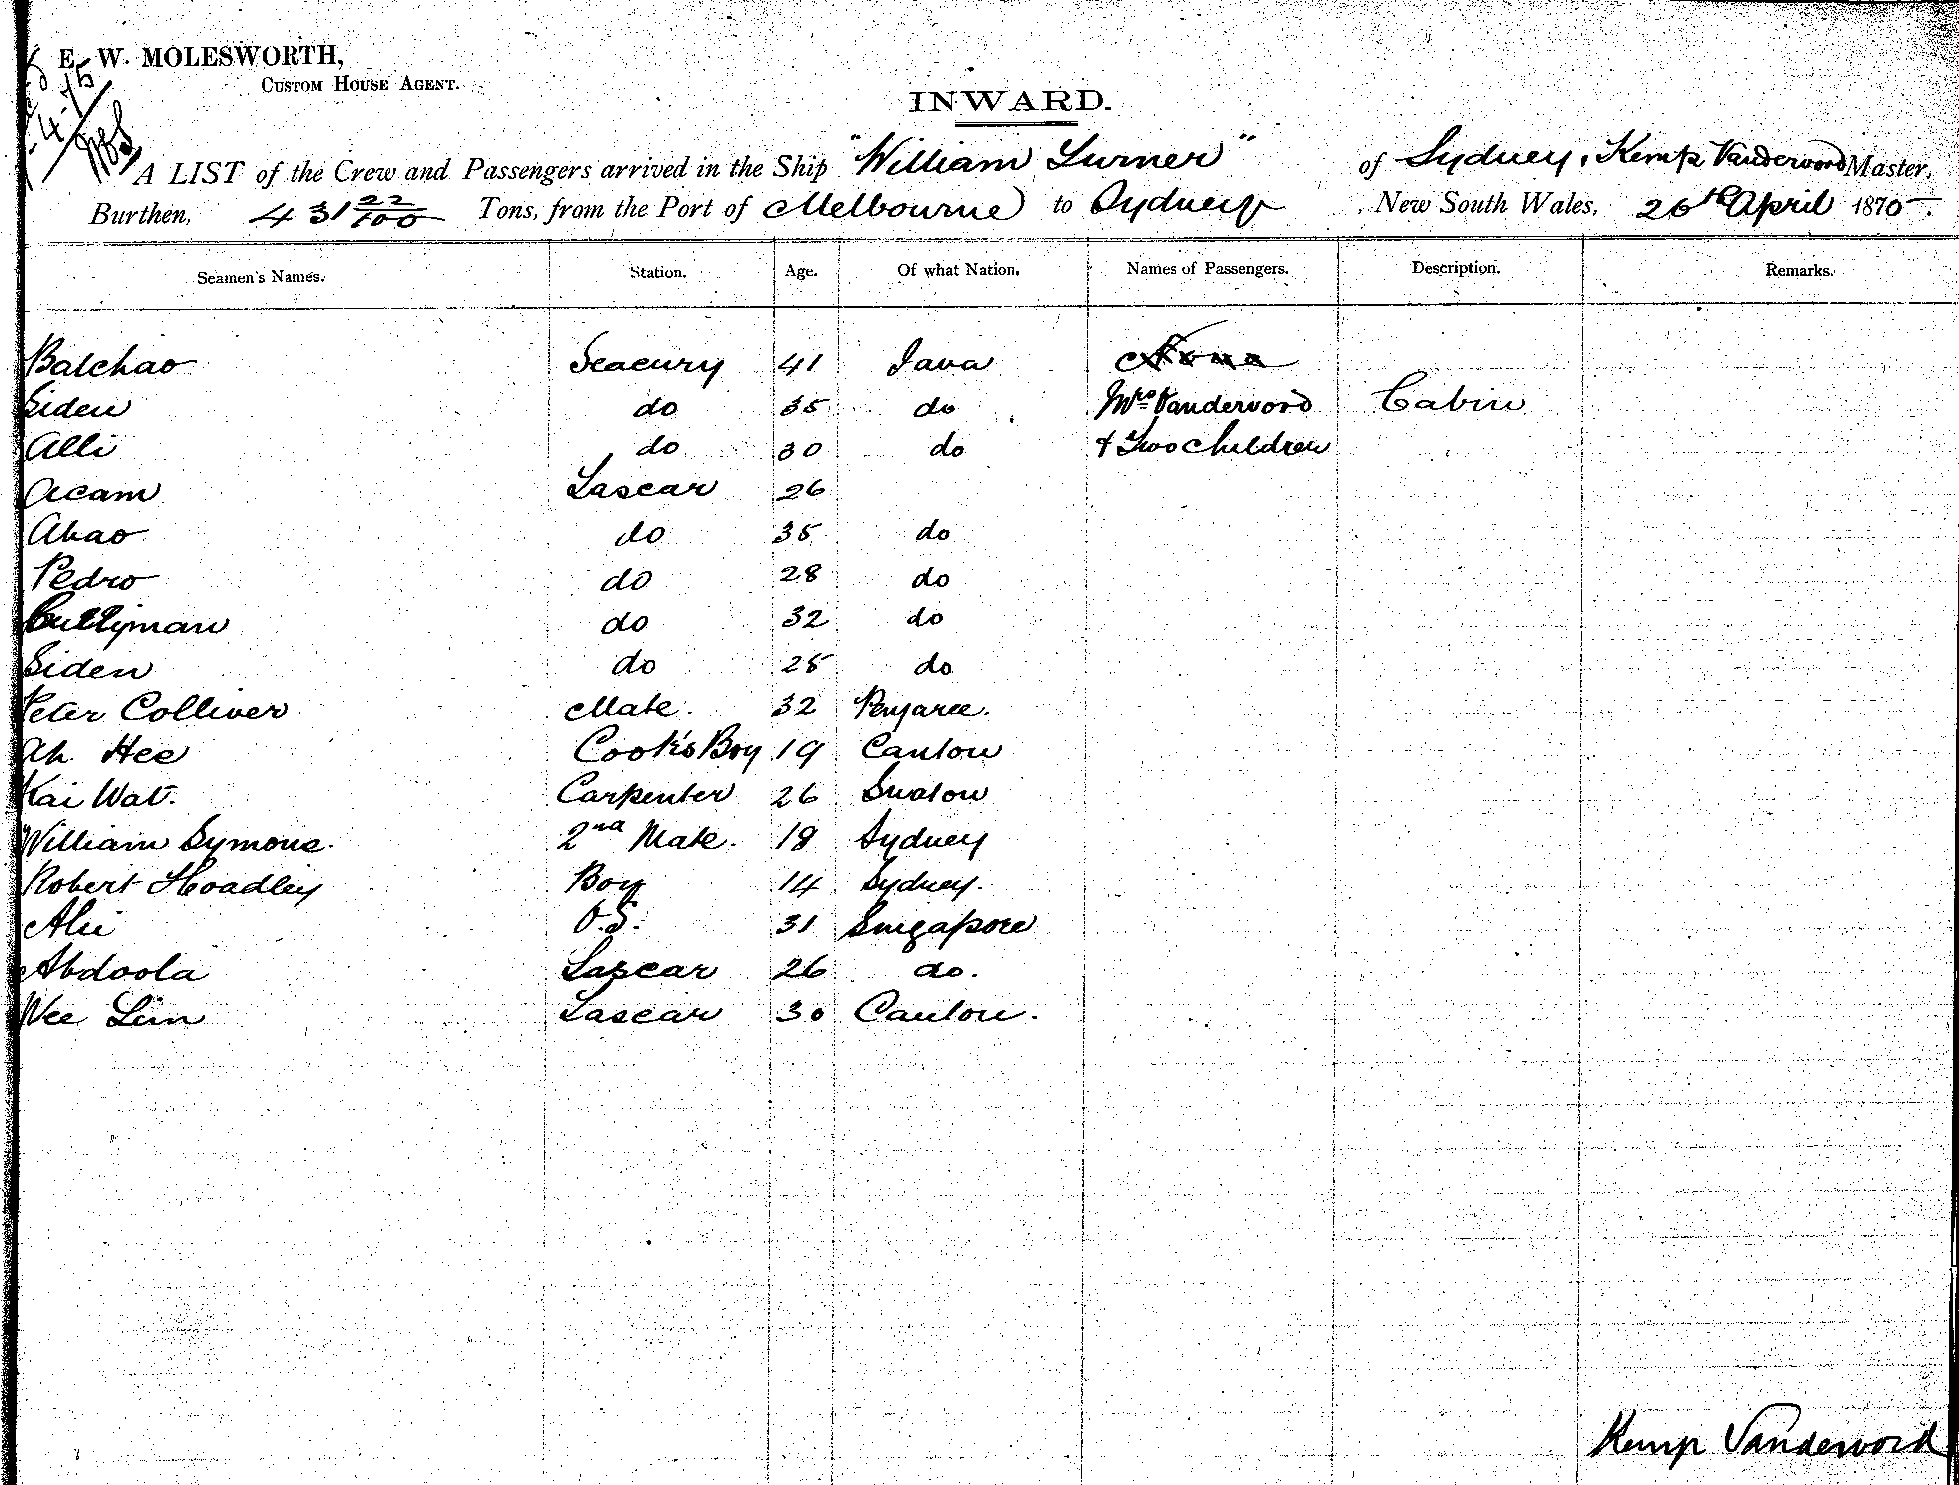 E. W. MOLESWORTH,
CUSTOM HOUSE AGENT.
INWARD.
A LIST of the Crew and Passengers arrived in the Ship "William Turner" of Sydney, Kemp Vanderword Master,
Burthen, 431 22/100 Tons, from the Port of Melbourne to Sydney, New South Wales, 26th April 1875.
Seamen's Names. Station. Age. Of what Nation. Names of Passengers. Description. Remarks.
Balchao Seacury 41 Java
Siden do 35 do Mrs Vanderword Cabin
Alli do 30 do & Two children
Acam Lascar 26
Ahao do 35 do
Pedro do 28 do
do 32 do
Siden do 25 do
Peter Colliver Mate. 32
Ah. Hee Cook's Boy 19 Canton
Kai Wat. Carpenter 26 Swatow
William Symons. 2nd Mate. 18 Sydney
Robert Hoadley Boy 14 Sydney.
Ali O.S. 31 Singapore
Abdoola Lascar 26 do.
Wee Lim Lascar 30 Canton.
Kemp Vanderword